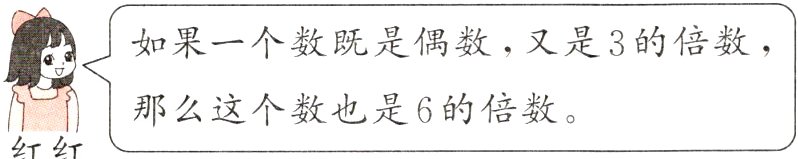 如果一个数既是偶数,又是3的倍数,
那么这个数也是6的倍数。
红红